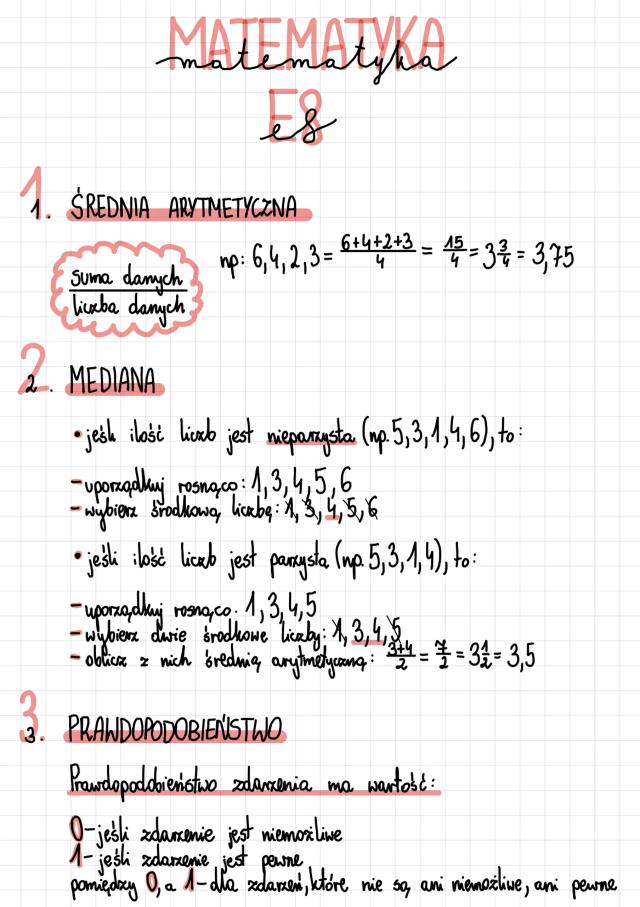 MATEMATYKA
matematyka
E8
e8
1. ŚREDNIA ARYTMETYCZNA
suma danych
liczba danych
np: 6, 4, 2, 3 = 6+4+2+3/4 = 15/4 = 3 3/4 = 3,75
2. MEDIANA
• jeśli ilość liczb jest nieparzysta (np. 5, 3, 1, 4, 6), to:
- uporządkuj rosnąco: 1, 3, 4, 5, 6
- wybierz środkową liczbę: 1, 3, 4, 5, 6
• jeśli ilość liczb jest parzysta (np. 5, 3, 1, 4), to:
- uporządkuj rosnąco. 1, 3, 4, 5
- wybierz dwie środkowe liczby: 1, 3, 4, 5
- oblicz z nich średnią arytmetyczną: 3+4/2 = 7/2 = 3 1/2 = 3,5
3. PRAWDOPODOBIEŃSTWO
Prawdopodobieństwo zdarzenia ma wartość:
0 - jeśli zdarzenie jest niemożliwe
1 - jeśli zdarzenie jest pewne
pomiędzy 0, a 1 - dla zdarzeń, które nie są ani niemożliwe, ani pewne